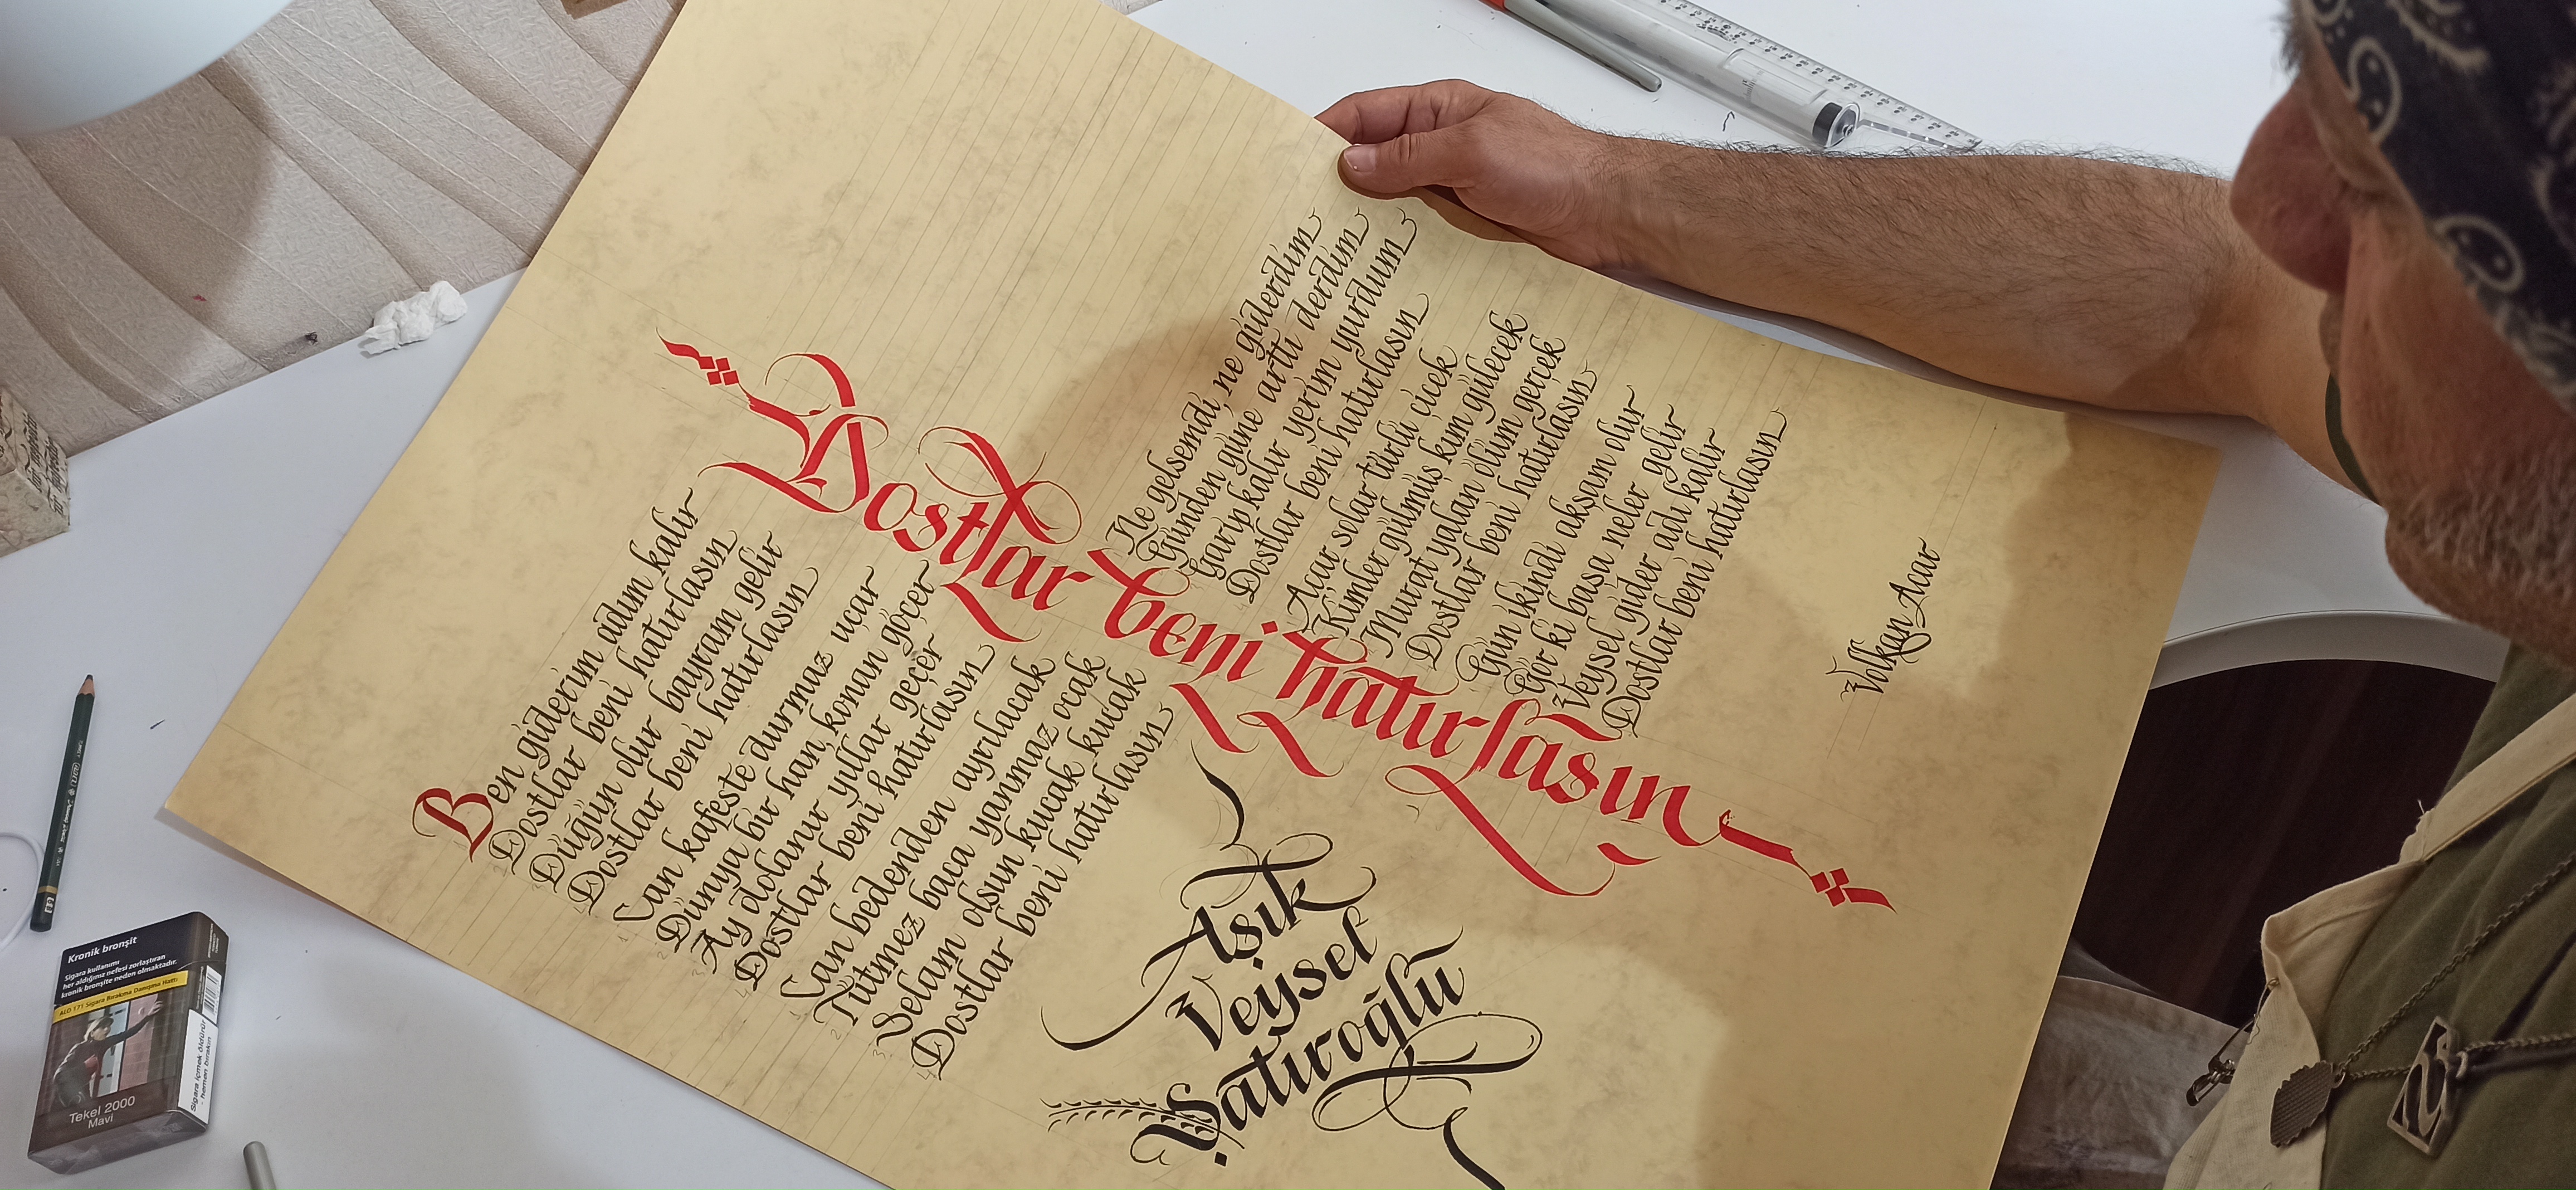 Ben giderim adım kalır
Dostlar beni hatırlasın
Düğün olur bayram gelir
Dostlar beni hatırlasın
Can kafeste durmaz uçar
Dünya bir han, konan göçer
Ay dolanır yıllar geçer
Dostlar beni hatırlasın
Can bedenden ayrılacak
Tütmez baca yanmaz ocak
Selam olsun kucak kucak
Dostlar beni hatırlasın
Dostlar beni hatırlasın
Ne gelsemdi, ne giderdim
Günden güne arttı derdim
Garip kalır yerim yurdum
Dostlar beni hatırlasın
Açar solar türlü çiçek
Kimler gülmüş kim gülecek
Murat yalan ölüm gerçek
Dostlar beni hatırlasın
Gün ikindi akşam olur
Gör ki başa neler gelir
Veysel gider adı kalır
Dostlar beni hatırlasın
Aşık
Veysel
Şatıroğlu
Volkan Acar
Kronik bronşit
Sigara kullanımı
her aldığınız nefesi zorlaştıran
kronik bronşite neden olmaktadır.
ALO 171 Sigara Bırakma Danışma Hattı
Sigara içmek öldürür
- hemen bırakın
Tekel 2000
Mavi